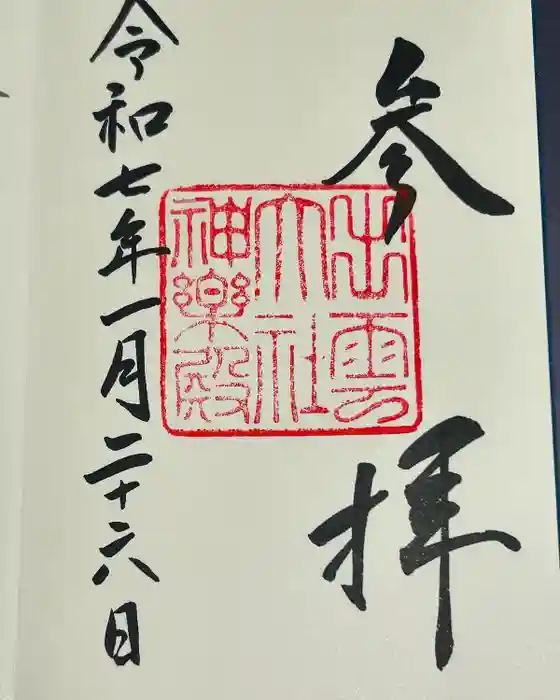 参拝
出雲
大社
神樂殿
令和七年一月二十六日